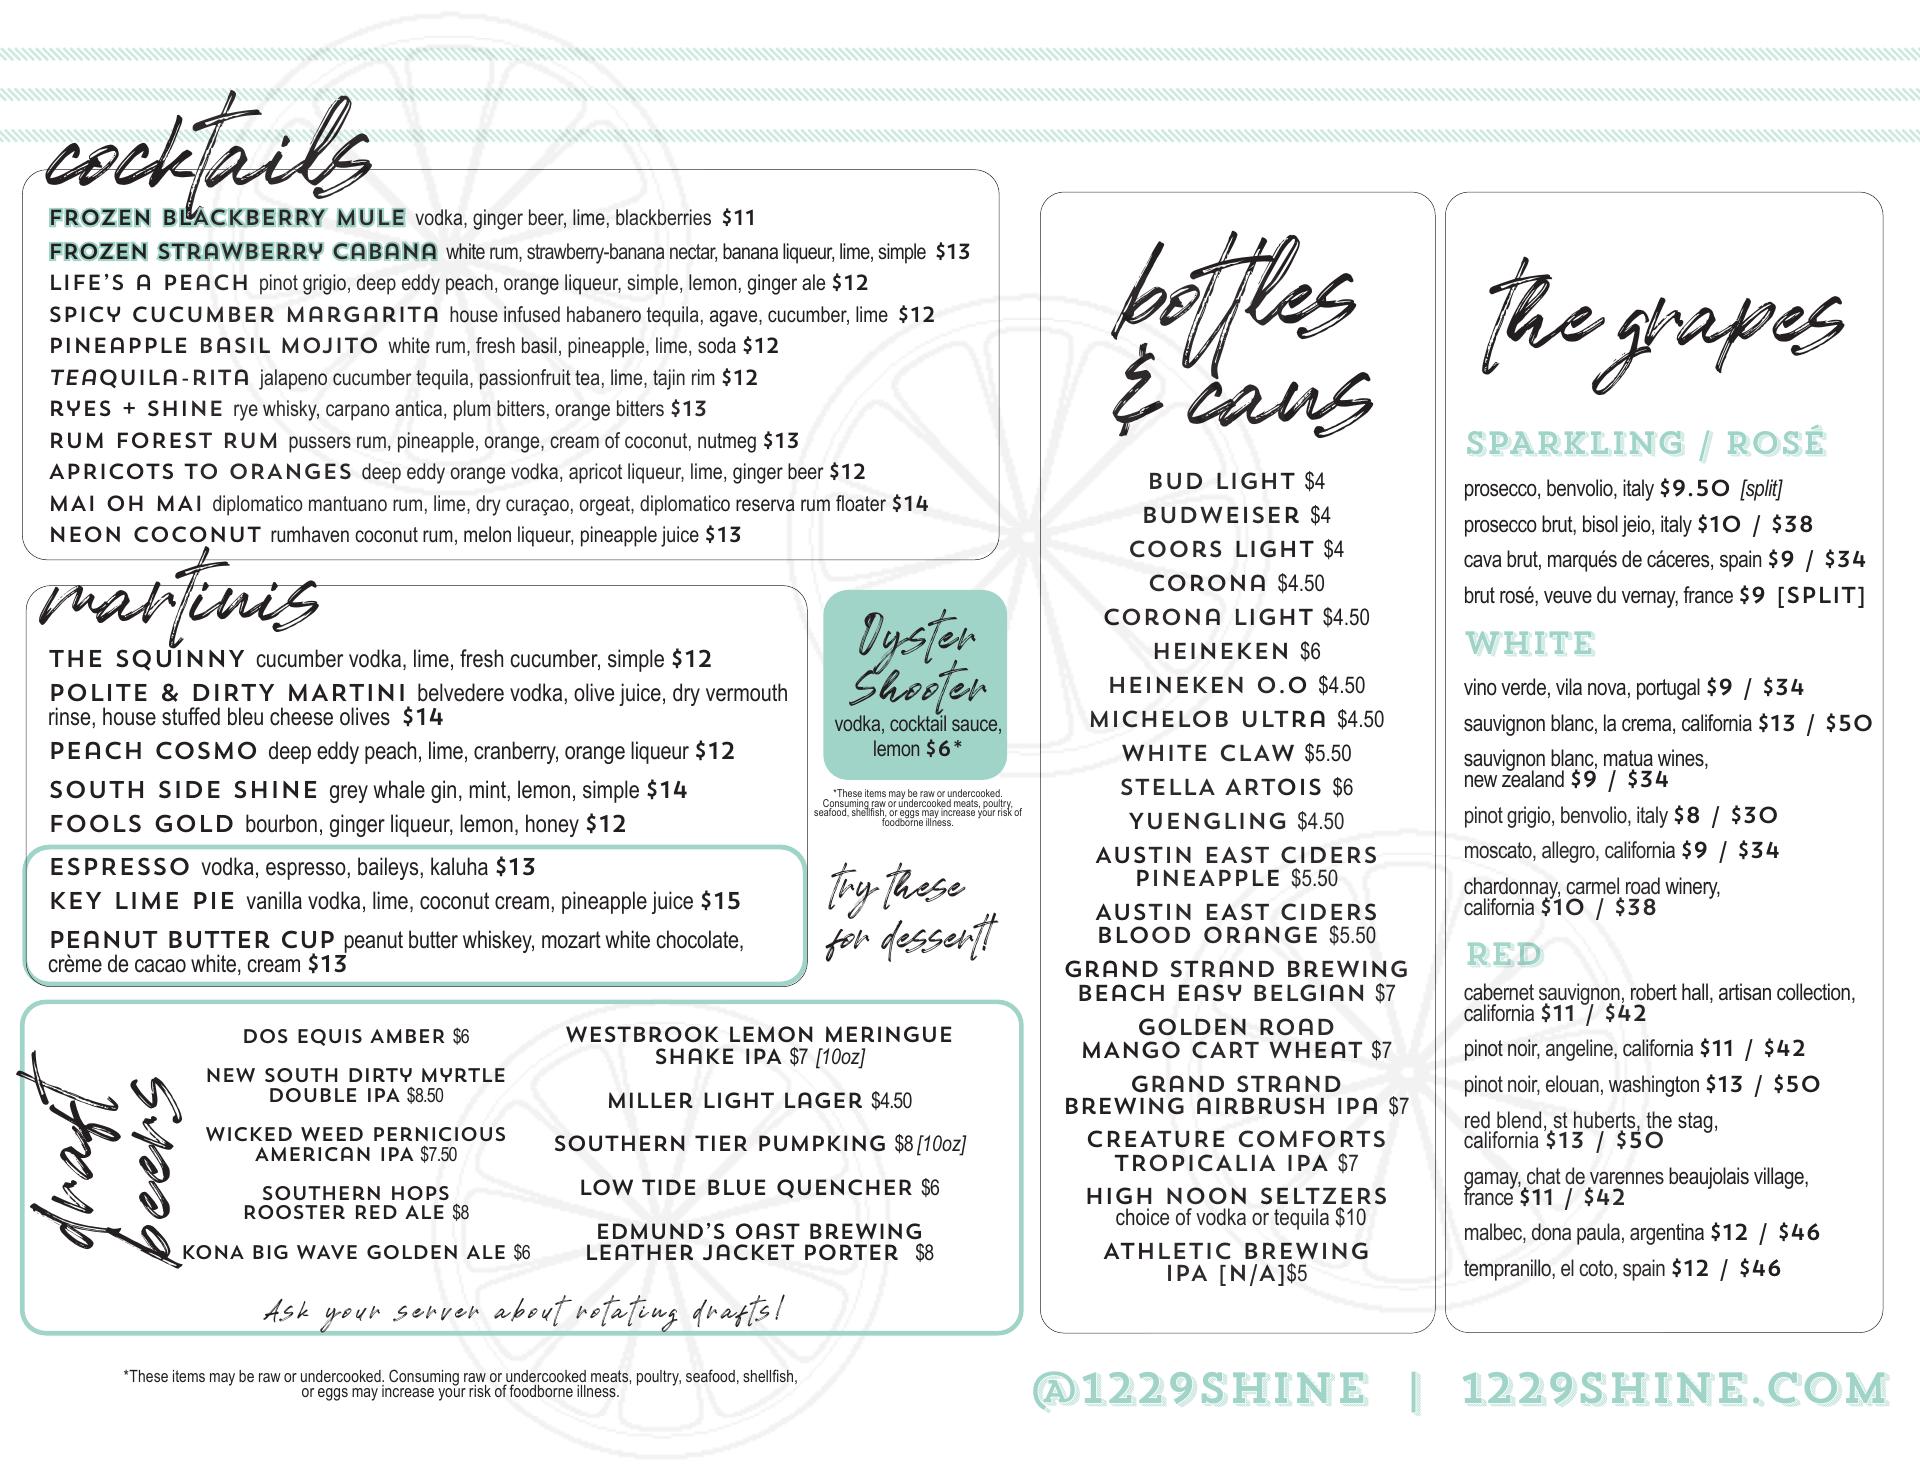 cocktails
FROZEN BLACKBERRY MULE vodka, ginger beer, lime, blackberries $11
FROZEN STRAWBERRY CABANA white rum, strawberry-banana nectar, banana liqueur, lime, simple $13
LIFE'S A PEACH pinot grigio, deep eddy peach, orange liqueur, simple, lemon, ginger ale $12
SPICY CUCUMBER MARGARITA house infused habanero tequila, agave, cucumber, lime $12
PINEAPPLE BASIL MOJITO white rum, fresh basil, pineapple, lime, soda $12
TEAQUILA-RITA jalapeno cucumber tequila, passionfruit tea, lime, tajin rim $12
RYES + SHINE rye whisky, carpano antica, plum bitters, orange bitters $13
RUM FOREST RUM pussers rum, pineapple, orange, cream of coconut, nutmeg $13
APRICOTS TO ORANGES deep eddy orange vodka, apricot liqueur, lime, ginger beer $12
MAI OH MAI diplomatico mantuano rum, lime, dry curaçao, orgeat, diplomatico reserva rum floater $14
NEON COCONUT rumhaven coconut rum, melon liqueur, pineapple juice $13
martinis
THE SQUINNY cucumber vodka, lime, fresh cucumber, simple $12
POLITE & DIRTY MARTINI belvedere vodka, olive juice, dry vermouth
rinse, house stuffed bleu cheese olives $14
PEACH COSMO deep eddy peach, lime, cranberry, orange liqueur $12
SOUTH SIDE SHINE grey whale gin, mint, lemon, simple $14
FOOLS GOLD bourbon, ginger liqueur, lemon, honey $12
ESPRESSO vodka, espresso, baileys, kaluha $13
KEY LIME PIE vanilla vodka, lime, coconut cream, pineapple juice $15
PEANUT BUTTER CUP peanut butter whiskey, mozart white chocolate,
crème de cacao white, cream $13
Oyster
Shooter
vodka, cocktail sauce,
lemon $6*
*These items may be raw or undercooked.
Consuming raw or undercooked meats, poultry,
seafood, shellfish, or eggs may increase your risk of
foodborne illness.
try these
for dessert!
draft
beers
DOS EQUIS AMBER $6
NEW SOUTH DIRTY MYRTLE
DOUBLE IPA $8.50
WICKED WEED PERNICIOUS
AMERICAN IPA $7.50
SOUTHERN HOPS
ROOSTER RED ALE $8
KONA BIG WAVE GOLDEN ALE $6
WESTBROOK LEMON MERINGUE
SHAKE IPA $7 [10oz]
MILLER LIGHT LAGER $4.50
SOUTHERN TIER PUMPKING $8 [10oz]
LOW TIDE BLUE QUENCHER $6
EDMUND'S OAST BREWING
LEATHER JACKET PORTER $8
Ask your server about rotating drafts!
*These items may be raw or undercooked. Consuming raw or undercooked meats, poultry, seafood, shellfish,
or eggs may increase your risk of foodborne illness.
bottles
& cans
BUD LIGHT $4
BUDWEISER $4
COORS LIGHT $4
CORONA $4.50
CORONA LIGHT $4.50
HEINEKEN $6
HEINEKEN O.O $4.50
MICHELOB ULTRA $4.50
WHITE CLAW $5.50
STELLA ARTOIS $6
YUENGLING $4.50
AUSTIN EAST CIDERS
PINEAPPLE $5.50
AUSTIN EAST CIDERS
BLOOD ORANGE $5.50
GRAND STRAND BREWING
BEACH EASY BELGIAN $7
GOLDEN ROAD
MANGO CART WHEAT $7
GRAND STRAND
BREWING AIRBRUSH IPA $7
CREATURE COMFORTS
TROPICALIA IPA $7
HIGH NOON SELTZERS
choice of vodka or tequila $10
ATHLETIC BREWING
IPA [N/A]$5
the grapes
SPARKLING / ROSÉ
prosecco, benvolio, italy $9.50 [split]
prosecco brut, bisol jeio, italy $10 / $38
cava brut, marqués de cáceres, spain $9 / $34
brut rosé, veuve du vernay, france $9 [SPLIT]
WHITE
vino verde, vila nova, portugal $9 / $34
sauvignon blanc, la crema, california $13 / $50
sauvignon blanc, matua wines,
new zealand $9 / $34
pinot grigio, benvolio, italy $8 / $30
moscato, allegro, california $9 / $34
chardonnay, carmel road winery,
california $10 / $38
RED
cabernet sauvignon, robert hall, artisan collection,
california $11 / $42
pinot noir, angeline, california $11 / $42
pinot noir, elouan, washington $13 / $50
red blend, st huberts, the stag,
california $13 / $50
gamay, chat de varennes beaujolais village,
france $11 / $42
malbec, dona paula, argentina $12 / $46
tempranillo, el coto, spain $12 / $46
@1229SHINE | 1229SHINE.COM